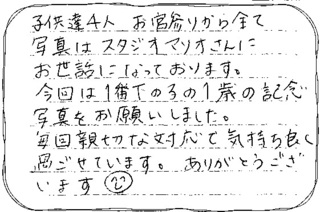 子供達4人 お宮参りから全て
写真はスタジオマリオさんに
お世話になっております。
今回は1番下の子の1歳の記念
写真をお願いしました。
毎回親切な対応で気持ち良く
過ごせています。 ありがとうござ
います